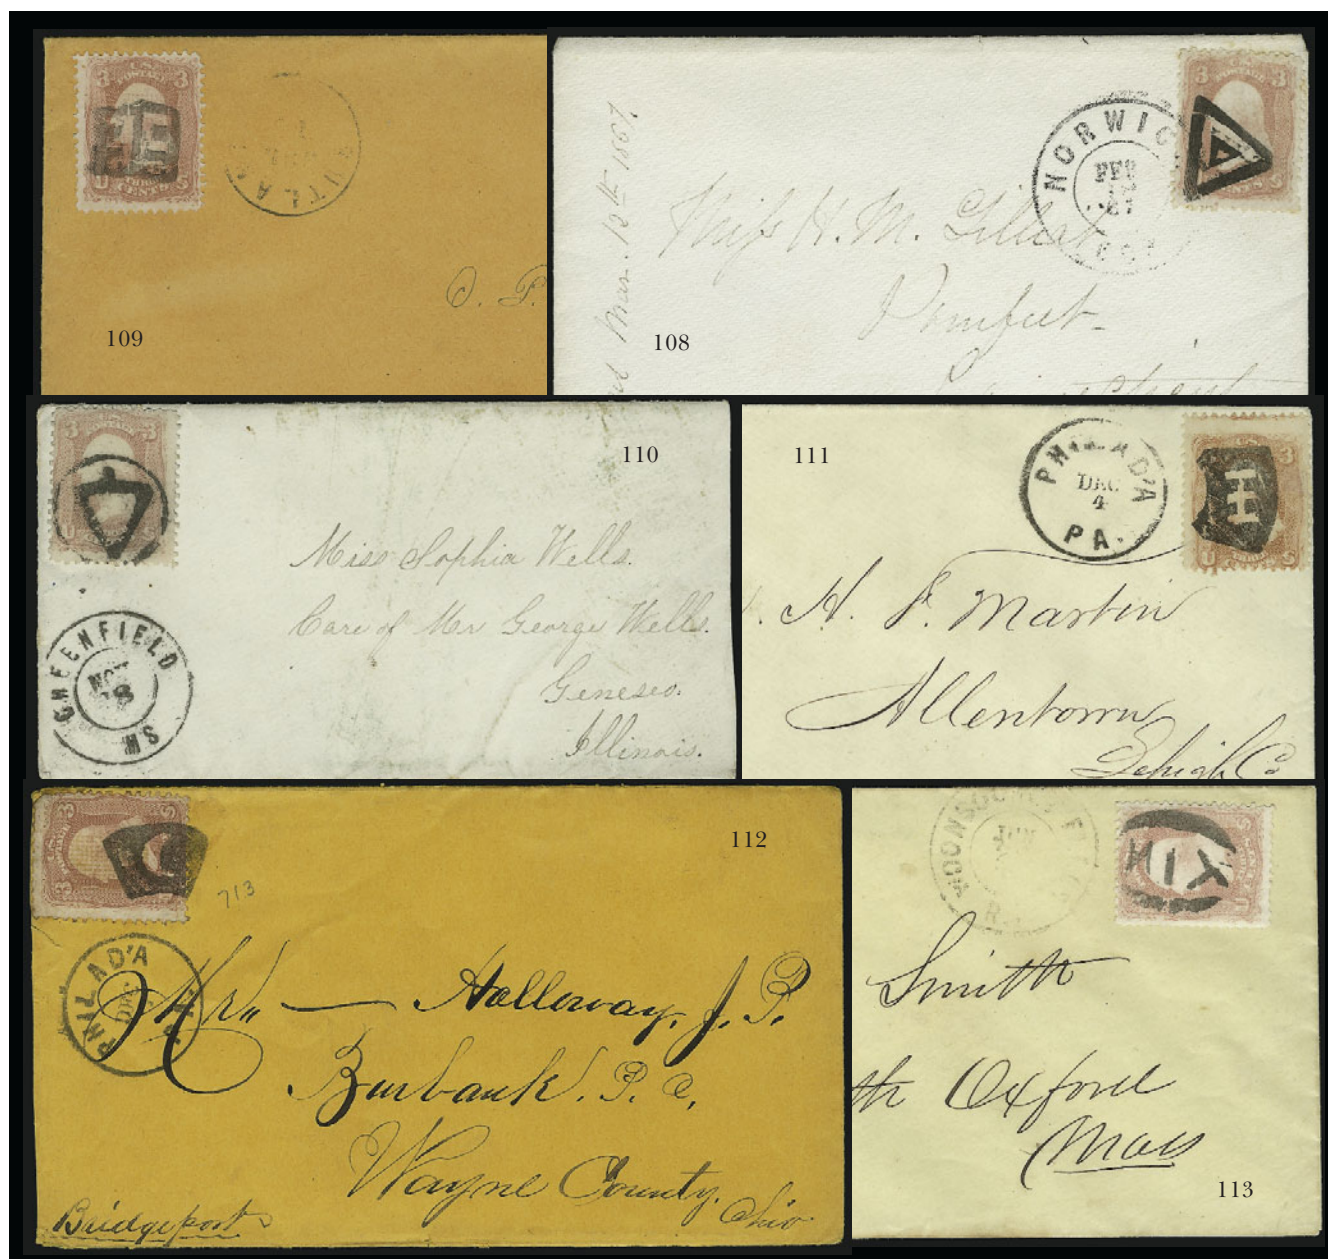 3 3
U.S.
POSTAGE
THREE
CENTS
O. P
109
NORWIC
FEB
67
Mar. 13th 1867.
Miss H. M.
Pomfret
108
3 3
110
Miss Sophia Wells.
Care of Mr George Wells.
Geneseo.
Illinois.
GREENFIELD
NOV
18
MS
111
PHILAD'A
DEC
4
PA.
3
H
H. F. Martin
Allentown
Lehigh Co
3
112
713
PHILAD'A
DEC
PA
Mr Holloway, J. P.
Burbank. P. O.
Wayne County.
Ohio
Bridgeport
WOONSOCKET FALLS
JUN
R.I.
Smith
th Oxford
Mass
113